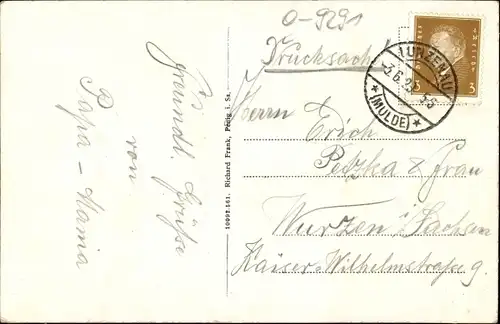 O-9291
Drucksache
LUNZENAU
3.6.
*(MULDE)*
3
freundl. Grüße
von
Papa - Mama
10092.161. Richard Frank, Penig i. Sa.
Herrn Erich
Petzka & Frau
Wurzen i/Sachsen
Kaiser-Wilhelmstraße 9.